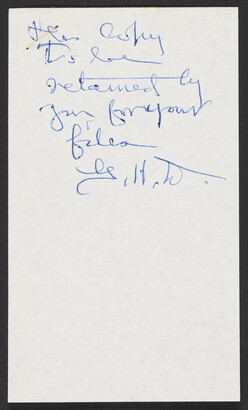 This Copy
To be
retained by
you for your
files
G.H.D.